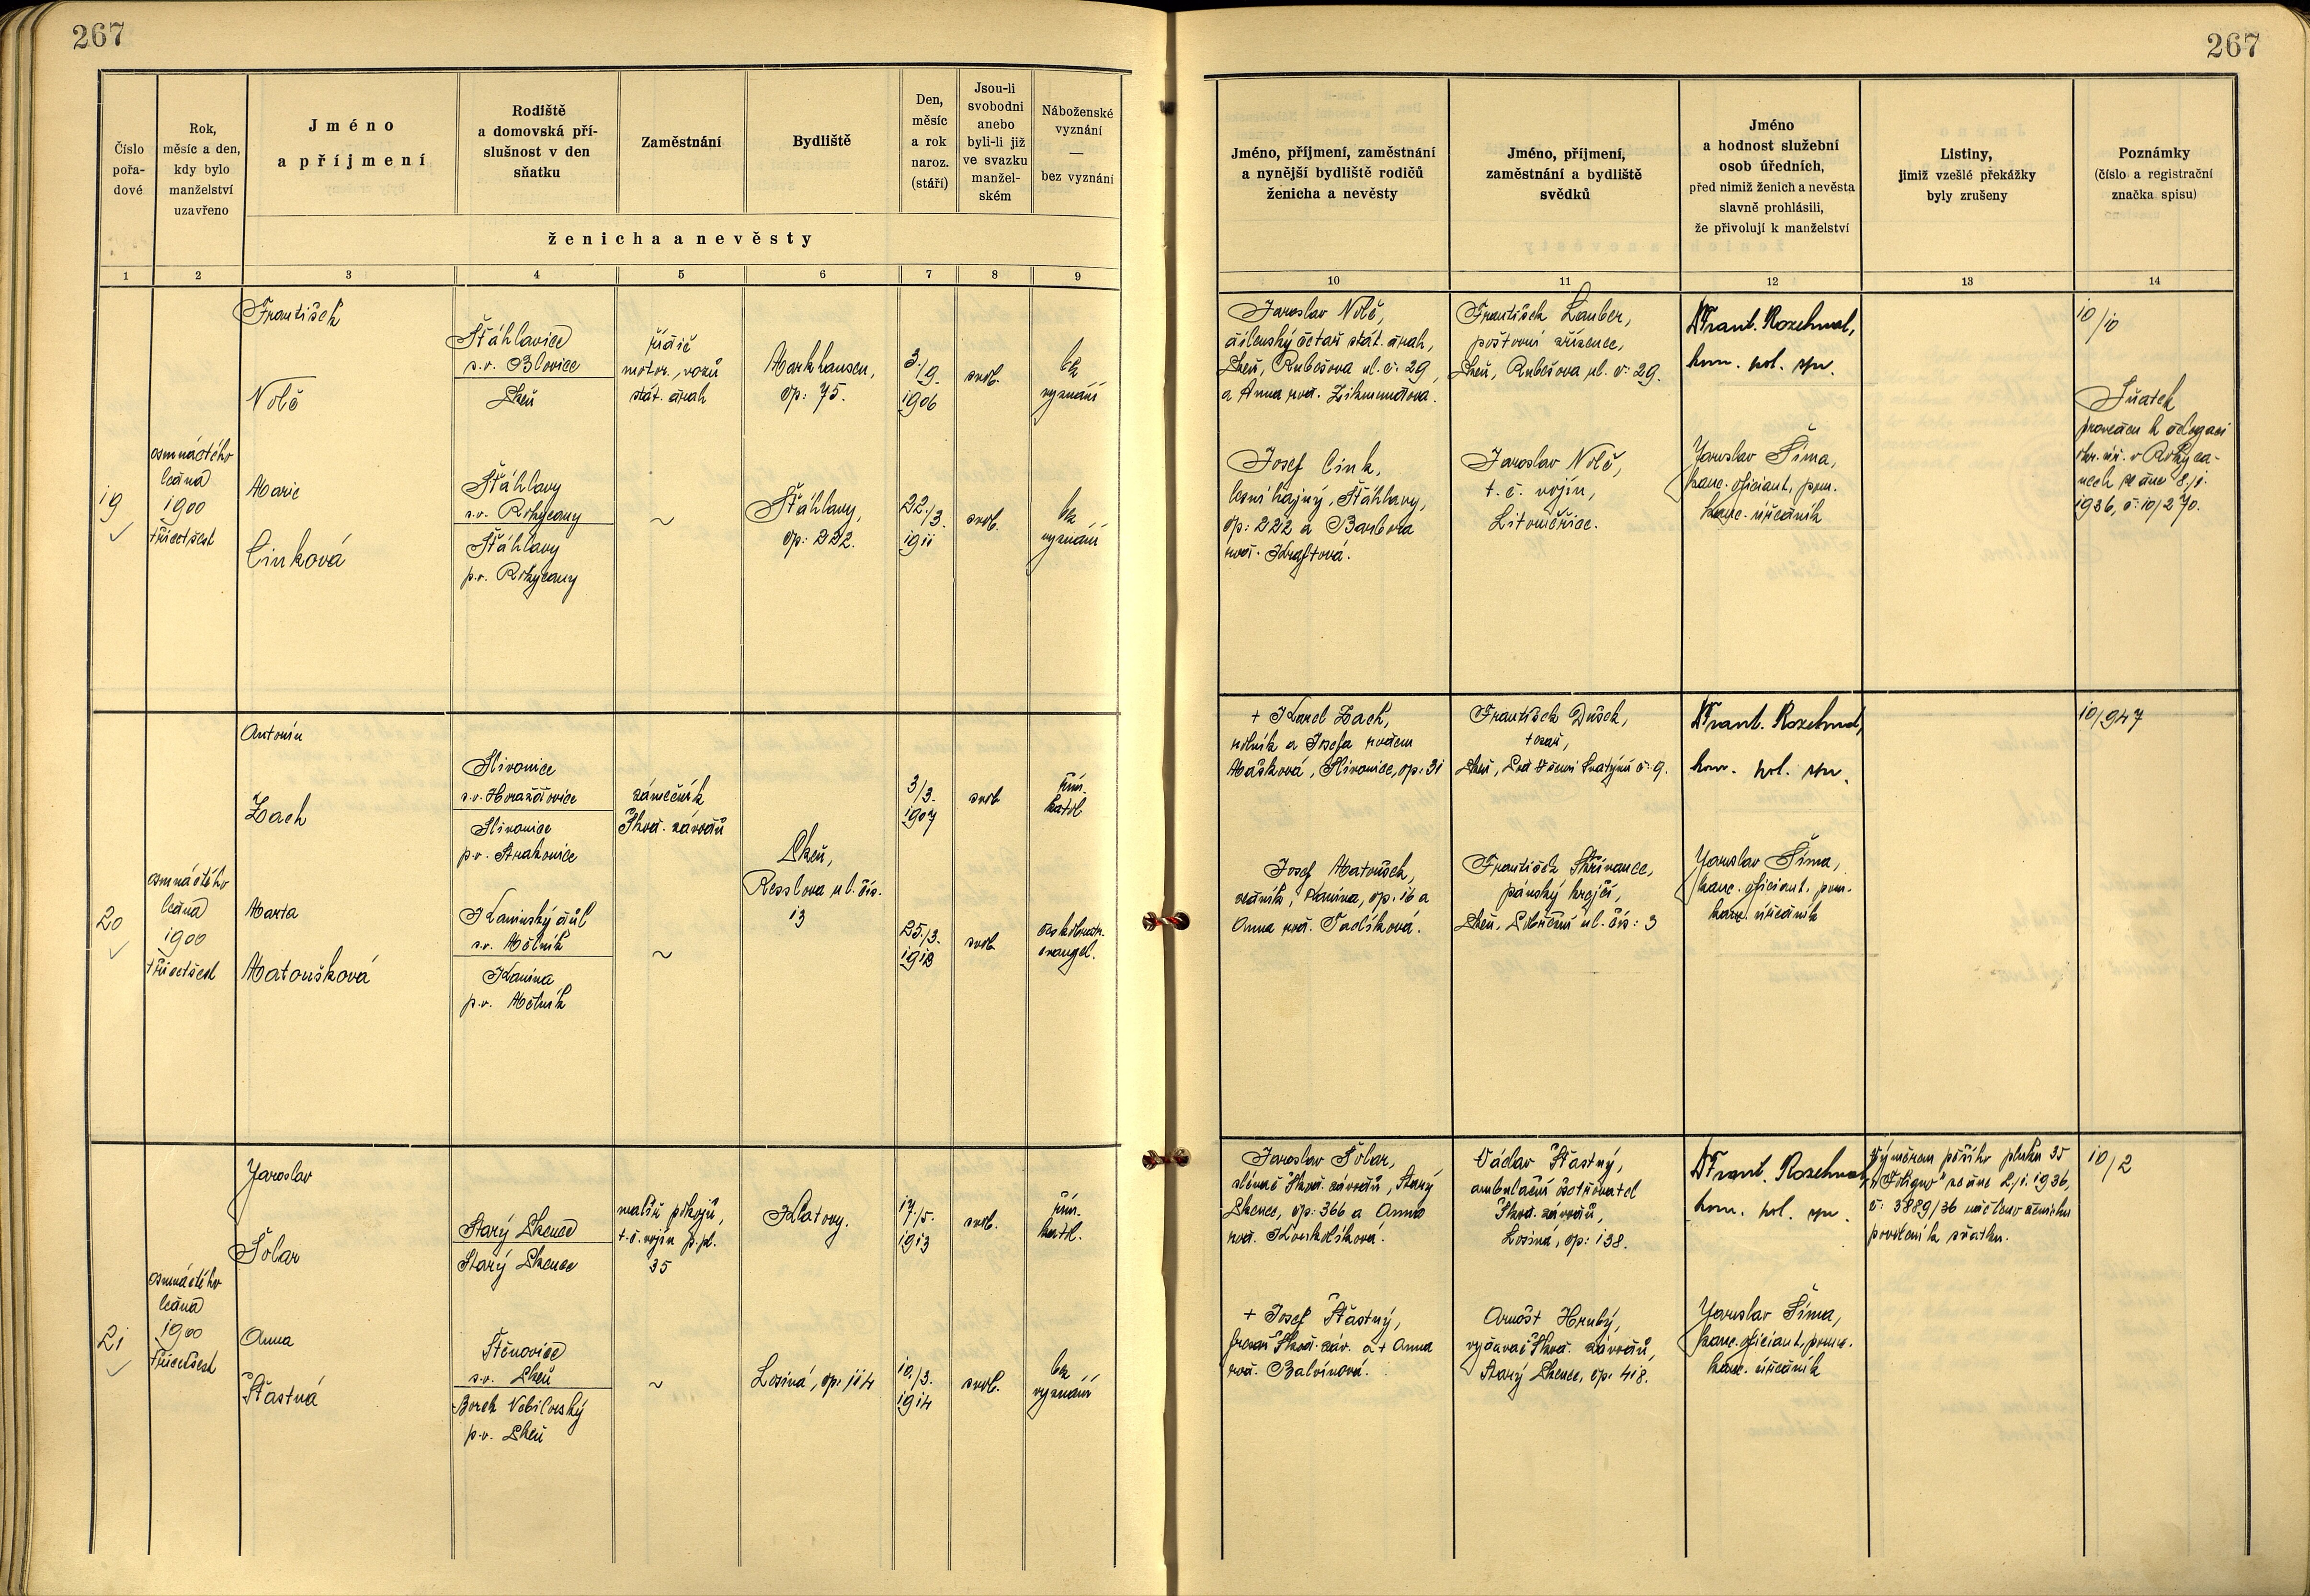 267
267
Číslo
pořa-
dové
Rok,
měsíc a den,
kdy bylo
manželství
uzavřeno
Jméno
a příjmení
Rodiště
a domovská pří-
slušnost v den
sňatku
Zaměstnání
Bydliště
Den,
měsíc
a rok
naroz.
(stáří)
Jsou-li
svobodni
anebo
byli-li již
ve svazku
manžel-
ském
Náboženské
vyznání
—
bez vyznání
ženicha a nevěsty
Jméno, příjmení, zaměstnání
a nynější bydliště rodičů
ženicha a nevěsty
Jméno, příjmení,
zaměstnání a bydliště
svědků
Jméno
a hodnost služební
osob úředních,
před nimiž ženich a nevěsta
slavně prohlásili,
že přivolují k manželství
Listiny,
jimiž vzešlé překážky
byly zrušeny
Poznámky
(číslo a registrační
značka spisu)
1 2 3 4 5 6 7 8 9
10 11 12 13 14
19
osmnáctého
ledna
1900
třicetšest
František
Nolč
Šťáhlavice
s.o. Blovice
Plzeň
řidič
motor. vozů
stát. drah
Markhausen,
čp: 75.
3./9.
1906
svob.
bez
vyznání
Marie
Cinková
Šťáhlavy
s.o. Rokycany
Šťáhlavy
p.o. Rokycany
~
Šťáhlavy,
čp: 222.
22./3.
1911
svob.
bez
vyznání
Jaroslav Nolč,
dílenský četař stát. drah,
Plzeň, Rubešova ul. č: 29,
a Anna roz. Zikmundova.
František Lauber,
poštovní zřízenec,
Plzeň, Rubešova ul. č: 29.
Frant. Rozehnal,
Josef Cink,
lesní hajný, Šťáhlavy,
čp: 222 a Barbora
roz. Kraftová.
Jaroslav Nolč,
t. č. vojín,
Litoměřice.
Jaroslav Šíma,
kanc. oficiant, pom.
kanc. úředník
10/10
Sňatek
proveden k delegaci
okr. úř. v Rokyca-
nech ze dne 8./1.
1936, č: 10/270.
20
osmnáctého
ledna
1900
třicetšest
Antonín
Zach
Slivonice
s.o. Horažďovice
Slivonice
p.o. Strakonice
zámečník
Škod. závodů
Plzeň,
Resslova ul. čís.
13
3/3.
1907
svob
řím.
katol
Marta
Matoušková
Kaninský důl
s.o. Mělník
Kanina
p.o. Mělník
~
25./3.
svob
českobratr.
evangel.
+ Karel Zach,
rolník a Josefa rozem
Mašková, Slivonice, čp: 31
František Dušek,
tesař,
Frant. Rozehnal,
Josef Matoušek,
zedník, Kanina, čp. 16 a
Anna roz. Tadlíková.
František Skřivanec,
pánský krejčí,
Jaroslav Šíma,
kanc. oficiant, pom.
kanc. úředník
10/947
21
osmnáctého
ledna
1900
třicetšest
Jaroslav
Šolar
Starý Plzenec
Starý Plzenec
malíř pokojů,
t. č. vojín p. pl.
35
Klatovy.
17./5.
1913
svob.
řím.
katol.
Anna
Šťastná
Štěnovice
s.o. Plzeň
Borek Nebilovský
p.o. Plzeň
~
Losiná, čp: 114
10./3.
1914
svob.
bez
vyznání
Jaroslav Šolar,
slévač Škod. závodů, Starý
Plzenec, čp: 366 a Anna
roz. Koukolíková.
Václav Šťastný,
ambulační ošetřovatel
Škod. závodů,
Losiná, čp: 138.
Frant. Rozehnal,
Výměrem pěšího pluku 35
„Foligno" ze dne 2./1. 1936,
č: 3889/36 uděleno ženichu
povolení k sňatku.
10/2
+ Josef Šťastný,
Škod. záv. a + Anna
roz. Balvínová.
Arnošt Hrubý,
vydavač Škod. závodů,
Starý Plzenec, čp. 418.
Jaroslav Šíma,
kanc. oficiant, pom.
kanc. úředník